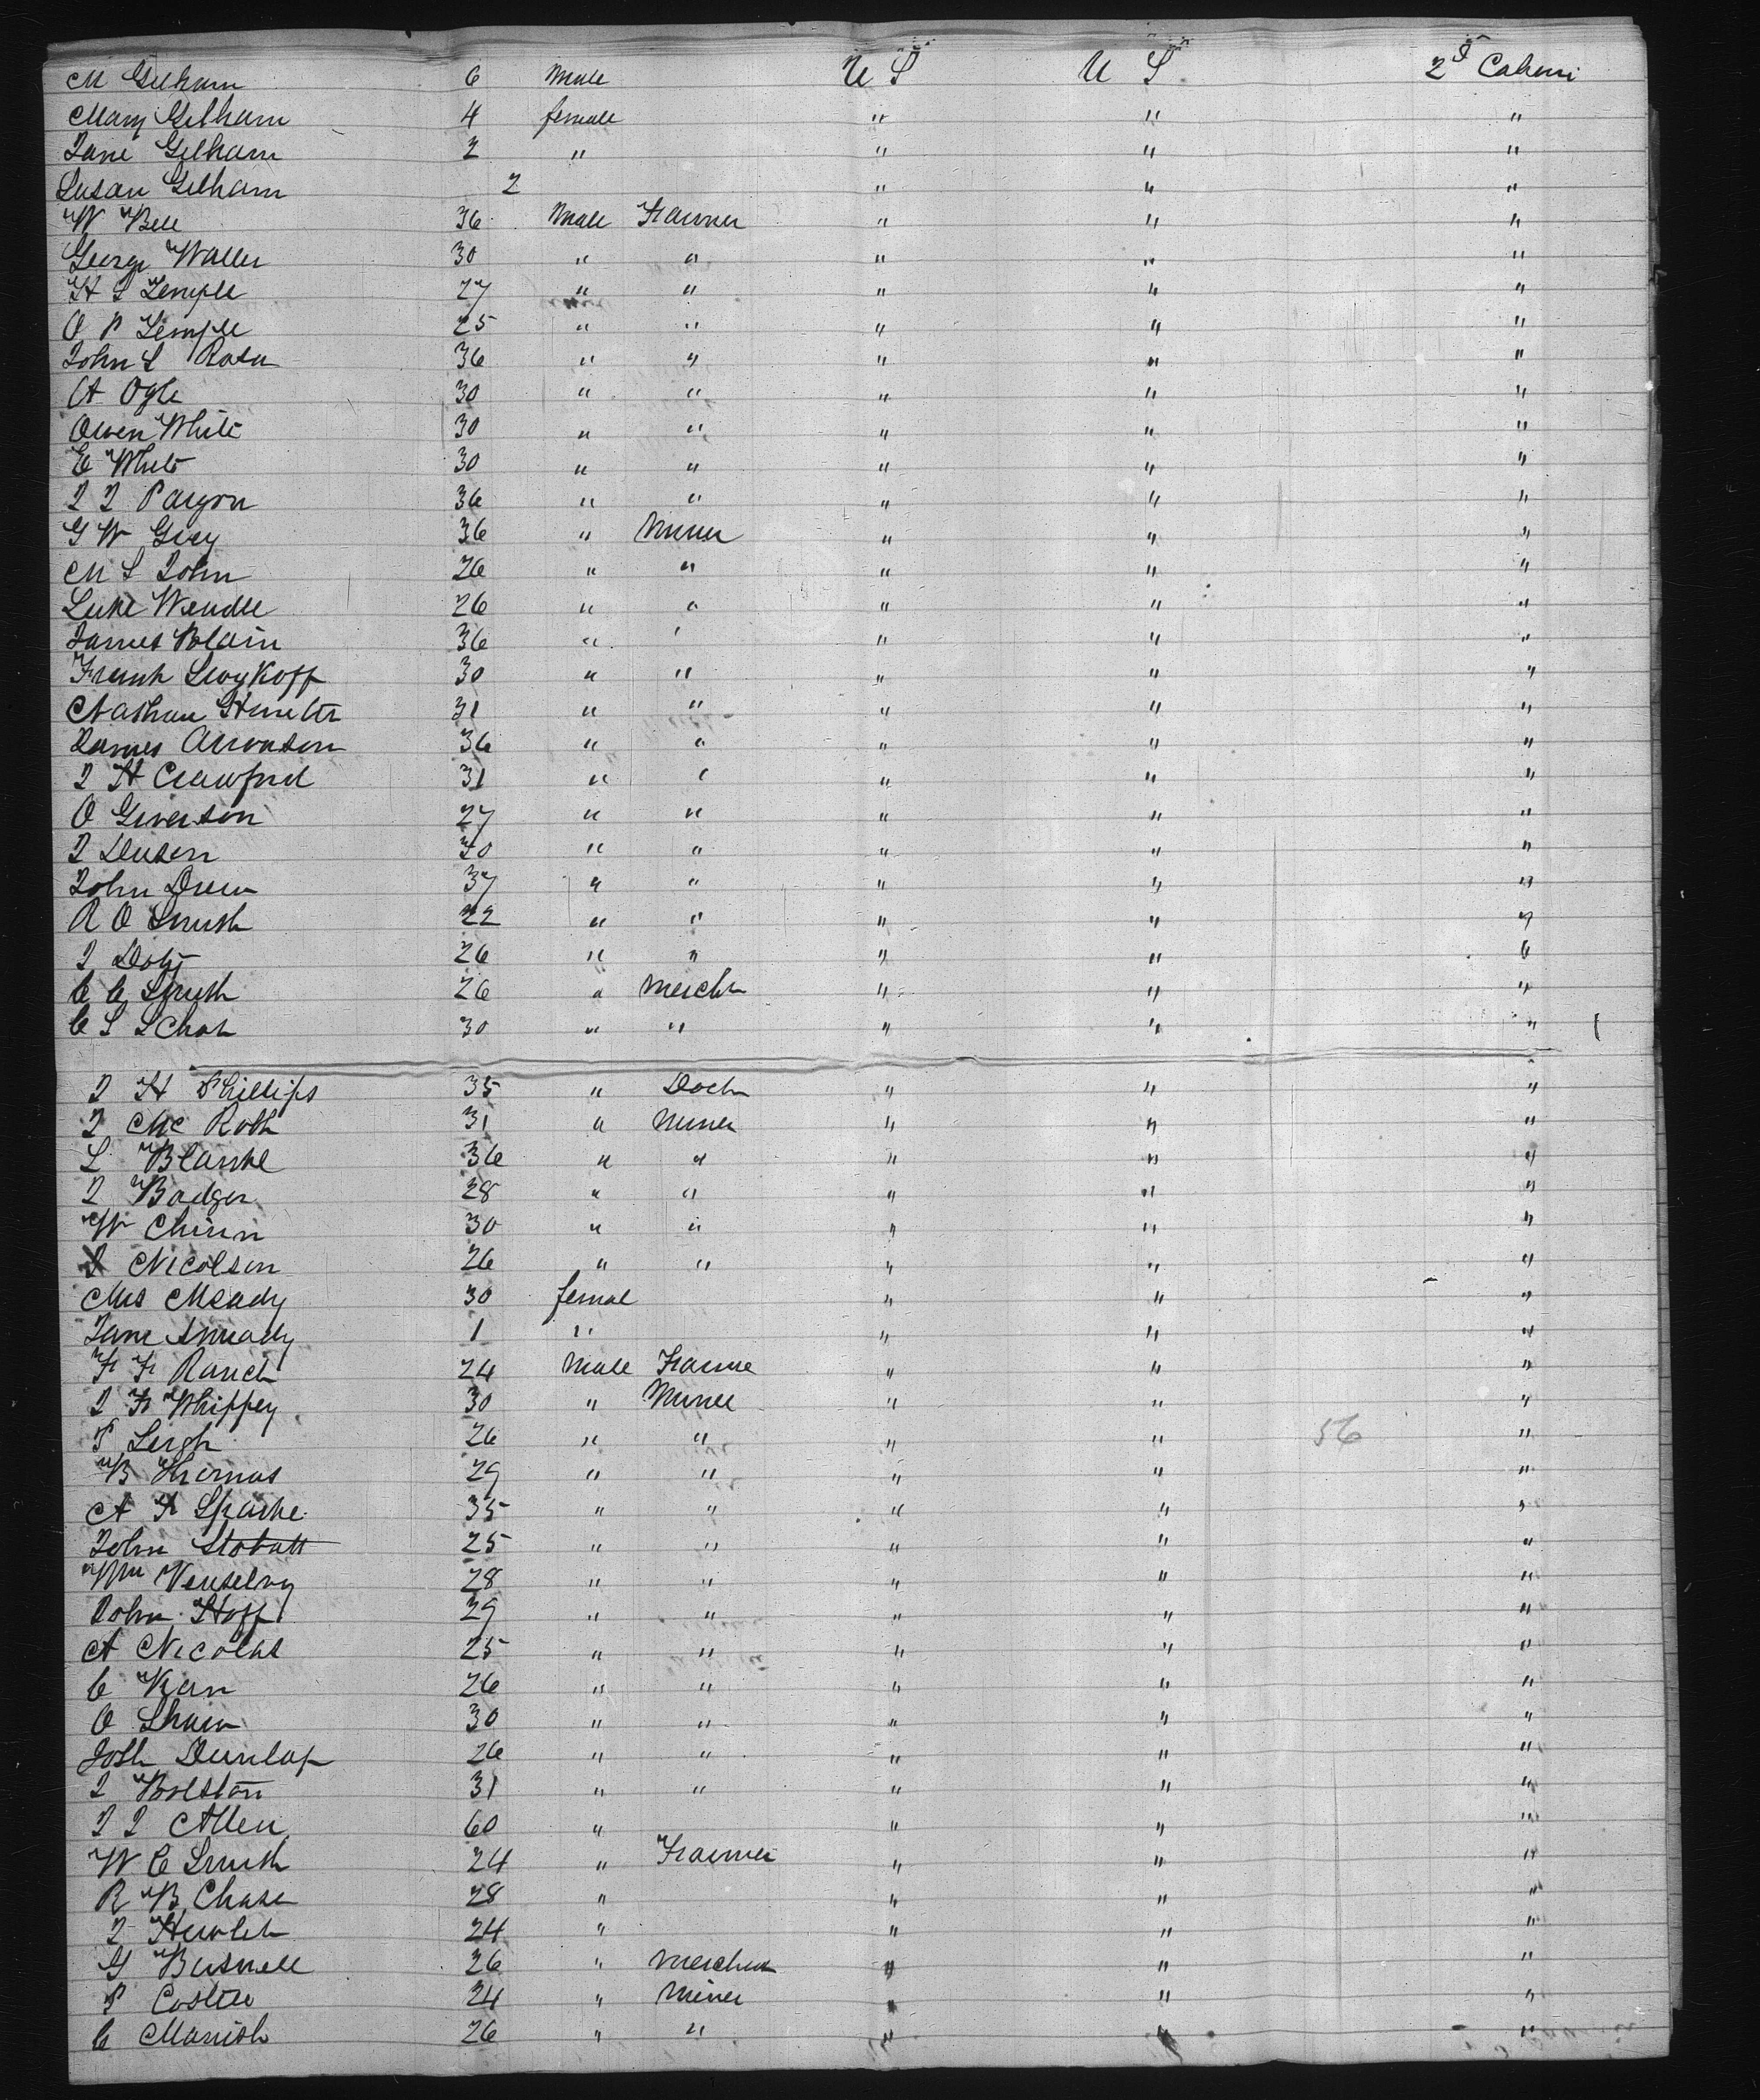 M Gilham 6 Male U S U S 2d Cabin
Mary Gilham 4 female " " "
Jane Gilham 2 " " " "
Susan Gilham 2 " " "
W Bell 36 Male Farmer " " "
George Waller 30 " " " " "
H S Temple 27 " " " " "
O P Temple 25 " " " " "
John S 36 " " " " "
A Ogle 30 " " " " "
Owen White 30 " " " " "
E White 30 " " " " "
J J 36 " " " " "
G W 36 " Miner " " "
M S John 26 " " " " "
Luke Wendle 26 " " " " "
James Blain 36 " " " " "
Frank 30 " " " " "
Nathan 31 " " " " "
James Aronson 36 " " " " "
J H Crawford 31 " " " " "
O Giverson 27 " " " " "
J 30 " " " " "
John Drew 37 " " " " "
R O Smith 22 " " " " "
J Doty 26 " " " " "
C C Smith 26 " Mercht " " "
C S 30 " " " " "
J H Phillips 35 " Doctr " " "
J Mc Roth 31 " Miner " " "
L Blanke 36 " " " " "
J Badger 28 " " " " "
W 30 " " " " "
J Nicolson 26 " " " " "
Mrs Meady 30 femal " " "
Jane 1 " " " "
F F Ranch 24 Male Farme " " "
J F Whippey 30 " Miner " " "
P Leigh 26 " " " " 56 "
B Thomas 29 " " " " "
A F Sparke 35 " " " " "
John Stobatt 25 " " " " "
Wm 28 " " " " "
John Hoff 29 " " " " "
A Nicolas 25 " " " " "
C Kean 26 " " " " "
O Shaw 30 " " " " "
Josh Dunlap 26 " " " " "
J Bolston 31 " " " " "
J J Allen 60 " " " "
W C Smith 24 " Farmer " " "
R B Chase 28 " " " "
J 24 " " " "
G Busnell 26 " Merchan " " "
P 24 " Miner " " "
C Marrish 26 " " " " "